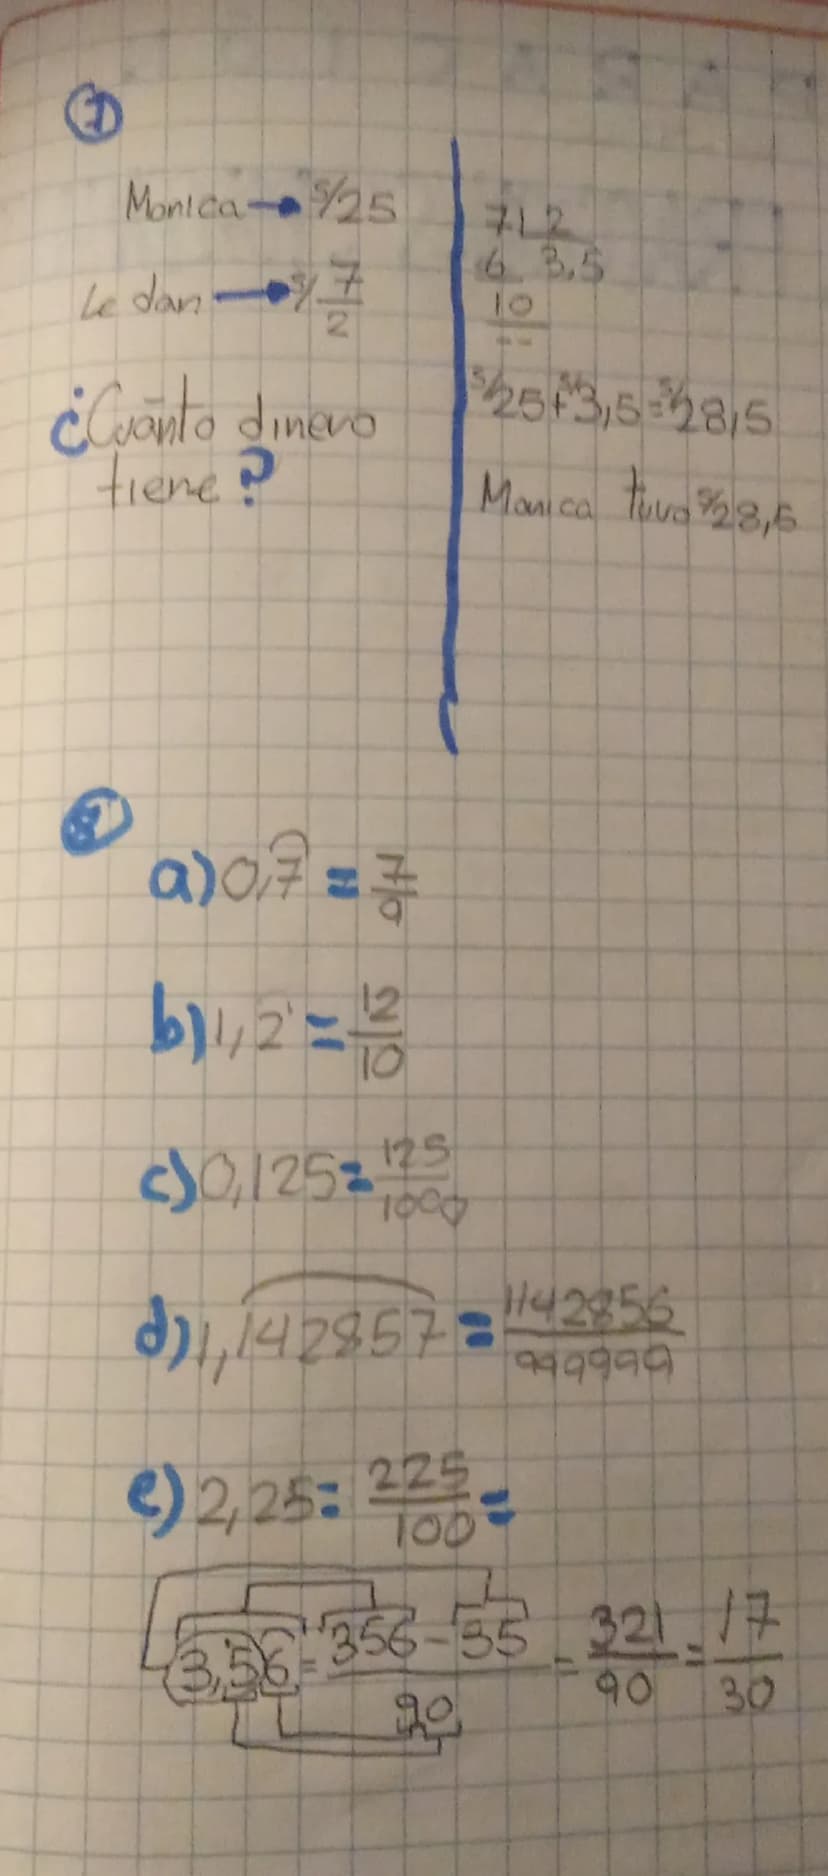 1
Monica → S/25
Le dan → S/ 7/2
¿Cuánto dinero
tiene?
7 | 2
6 3,5
10
--
S/25 + S/3,5 = S/28,5
Monica tuvo S/28,5
a) 0,7 = 7/9
b) 1,2 = 12/10
c) 0,125 = 125/1000
d) 1,142857 = 1142856/999999
e) 2,25 = 225/100 =
3,56 = 356-35/90 = 321/90 = 17/30